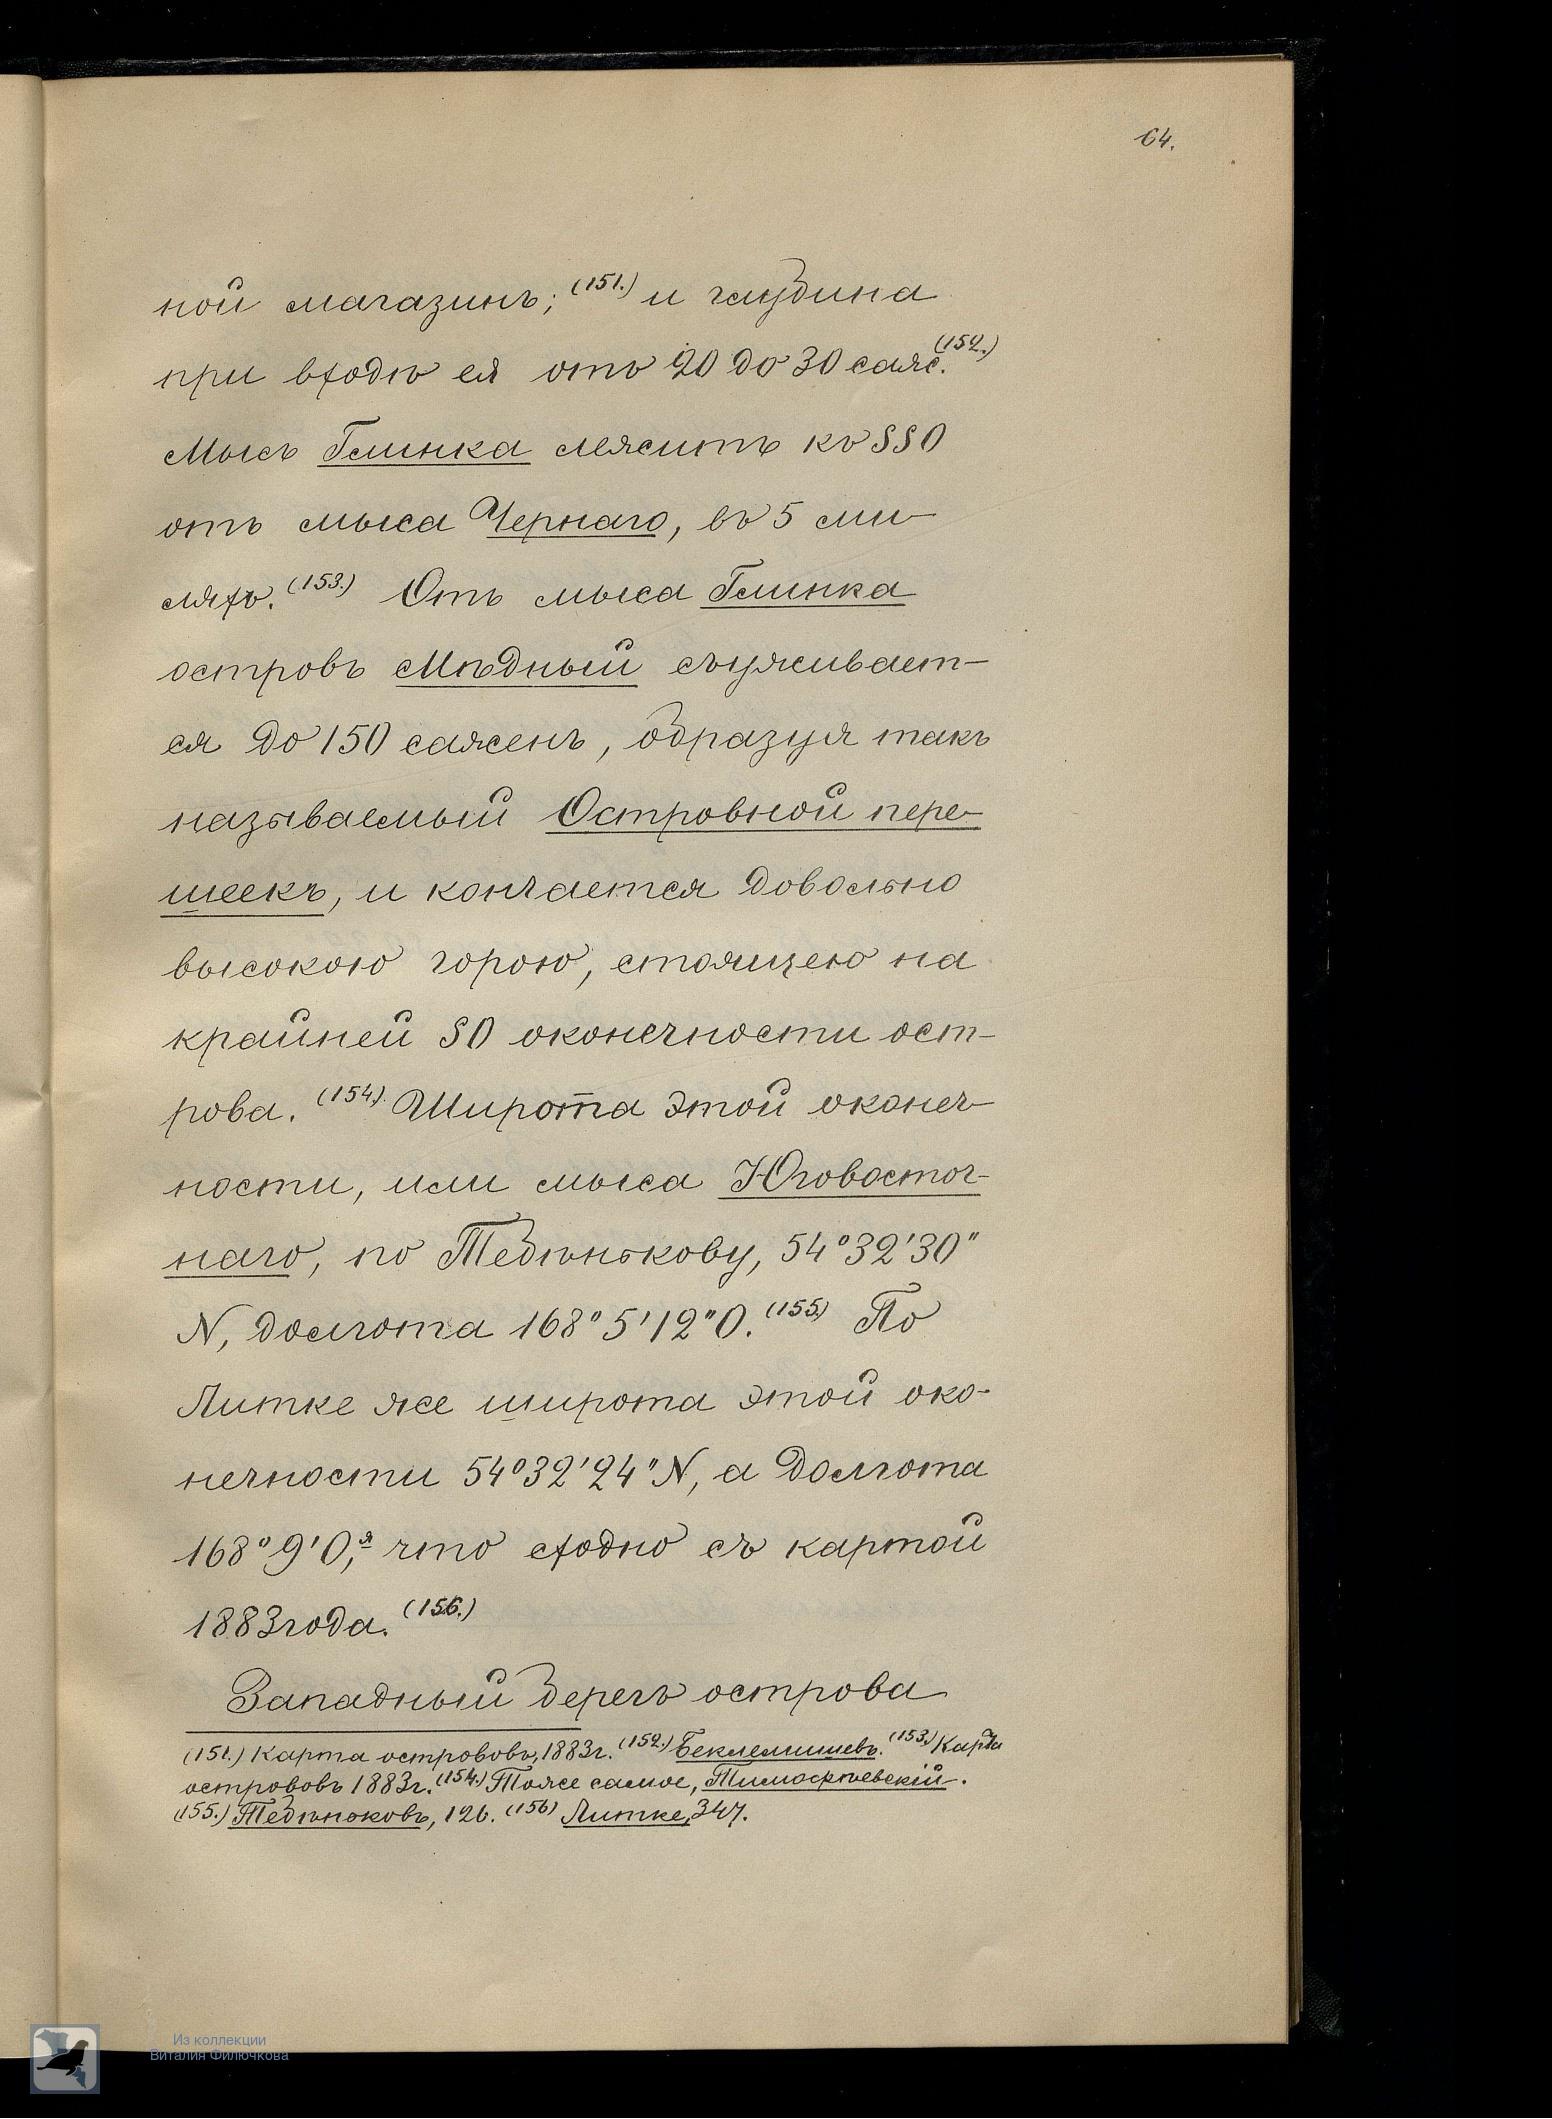 64.
ной магазинъ; (151.) и глубина
при входѣ ея отъ 20 до 30 саж. (152.)
Мысъ Глинка лежитъ къ SSO
отъ мыса Чернаго, въ 5 ми-
ляхъ. (153.) Отъ мыса Глинка
островъ Мѣдный съуживает-
ся до 150 саженъ, образуя такъ
называемый Островной пере-
шеекъ, и кончается довольно
высокою горою, стоящею на
крайней SO оконечности ост-
рова. (154.) Широта этой оконеч-
ности, или мыса Юговосточ-
наго, по Тебѣнькову, 54°32'30"
N, долгота 168°5'12"O. (155.) По
Литке же широта этой око-
нечности 54°32'24"N, а долгота
168°9'O, что сходно съ картой
1883 года. (156.)
Западный берегъ острова
(151.) Карта острововъ, 1883 г. (152.) Беклемишевъ. (153.) Карта
острововъ 1883 г. (154.) Тоже самое, Тимофѣевскій.
(155.) Тебѣньковъ, 126. (156) Литке, 347.
Из коллекции
Виталия Филючкова